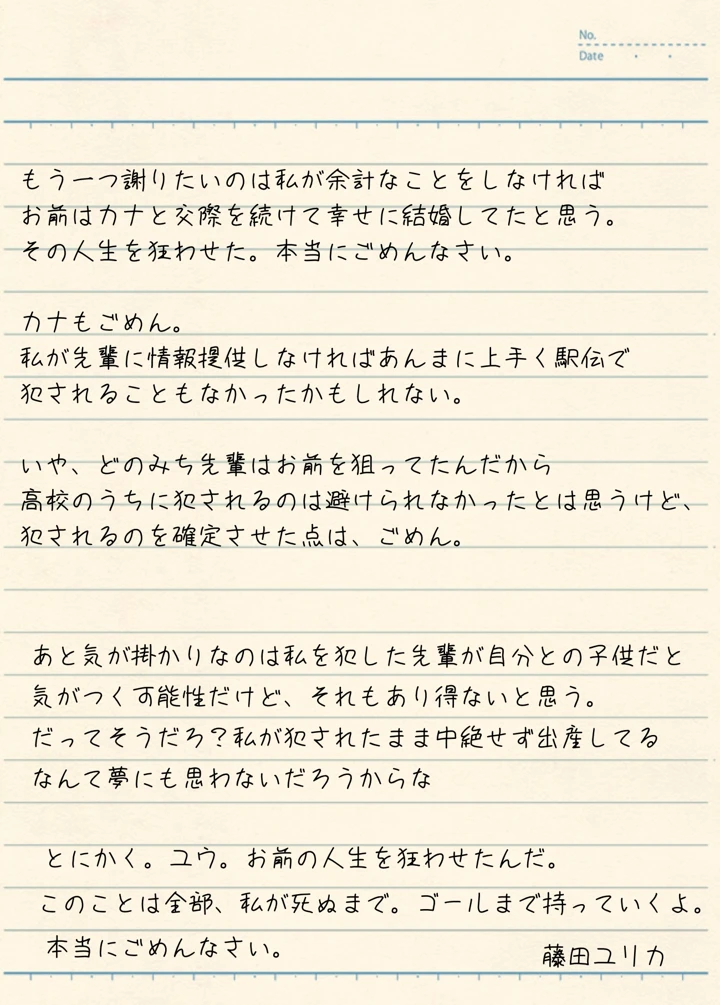 No.
Date
もう一つ謝りたいのは私が余計なことをしなければ
お前はカナと交際を続けて幸せに結婚してたと思う。
その人生を狂わせた。本当にごめんなさい。
カナもごめん。
私が先輩に情報提供しなければあんまに上手く駅伝で
犯されることもなかったかもしれない。
いや、どのみち先輩はお前を狙ってたんだから
高校のうちに犯されるのは避けられなかったとは思うけど、
犯されるのを確定させた点は、ごめん。
あと気が掛かりなのは私を犯した先輩が自分との子供だと
気がつく可能性だけど、それもあり得ないと思う。
だってそうだろ?私が犯されたまま中絶せず出産してる
なんて夢にも思わないだろうからな
とにかく。ユウ。お前の人生を狂わせたんだ。
このことは全部、私が死ぬまで。ゴールまで持っていくよ。
本当にごめんなさい。
藤田ユリカ